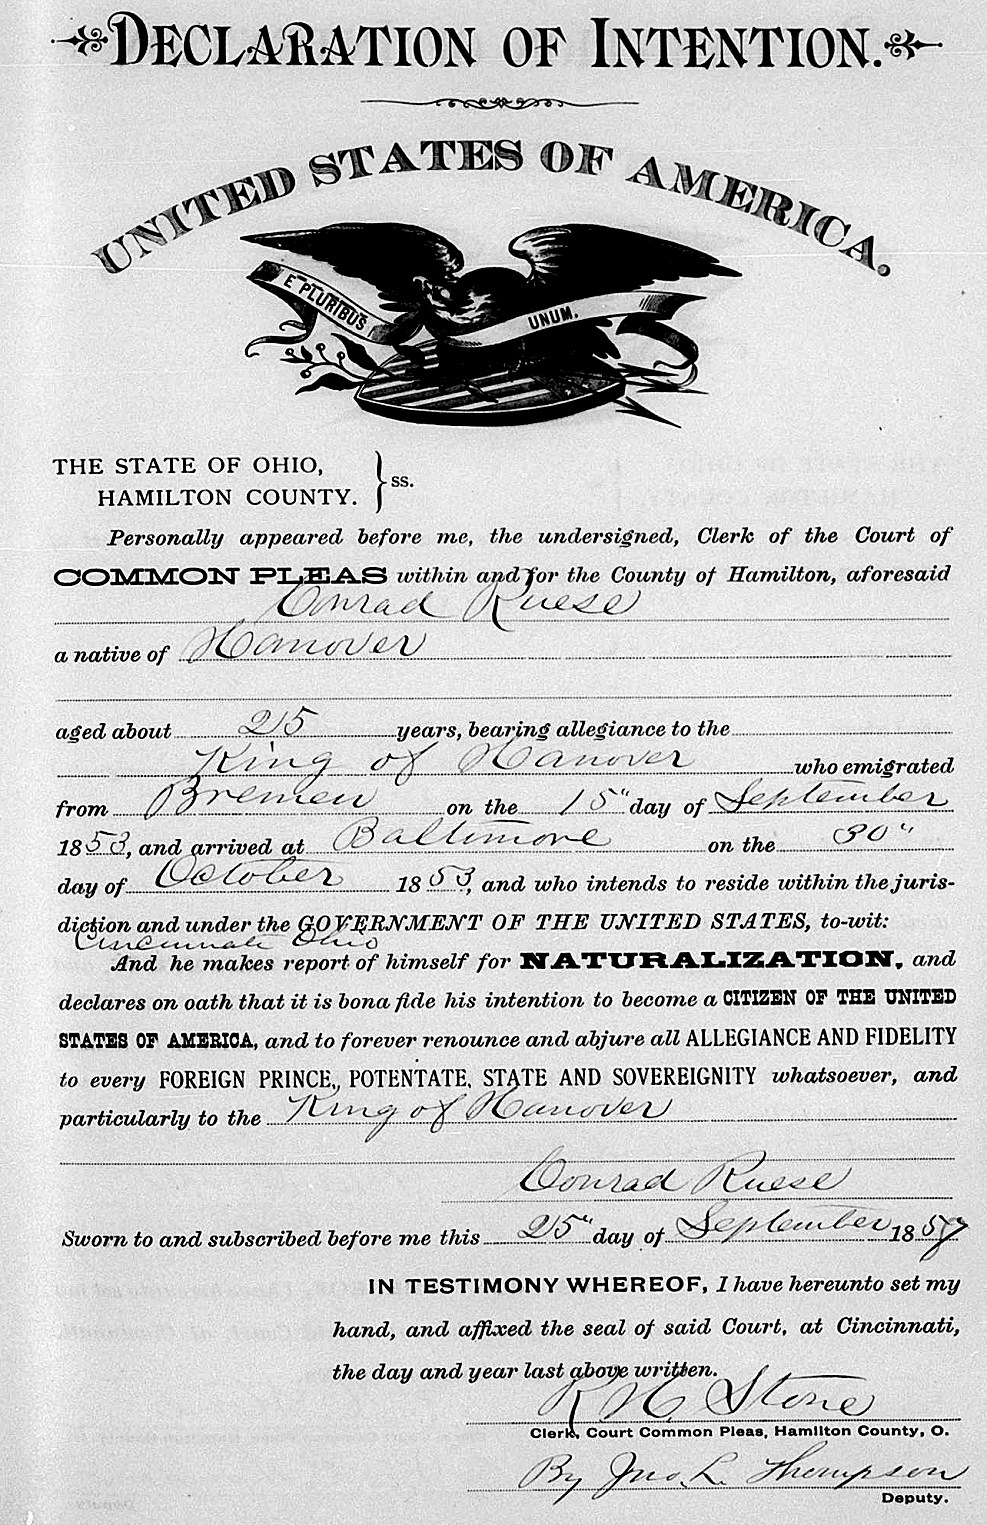 DECLARATION OF INTENTION.
UNITED STATES OF AMERICA.
E PLURIBUS UNUM.
THE STATE OF OHIO,
HAMILTON COUNTY. } ss.
Personally appeared before me, the undersigned, Clerk of the Court of
COMMON PLEAS within and for the County of Hamilton, aforesaid
Conrad Ruese
a native of Hanover
aged about 25 years, bearing allegiance to the
King of Hanover who emigrated
from Bremen on the 15" day of September
1853, and arrived at Baltimore on the 30"
day of October 1853, and who intends to reside within the juris-
diction and under the GOVERNMENT OF THE UNITED STATES, to-wit:
Cincinnati Ohio
And he makes report of himself for NATURALIZATION, and
declares on oath that it is bona fide his intention to become a CITIZEN OF THE UNITED
STATES OF AMERICA, and to forever renounce and abjure all ALLEGIANCE AND FIDELITY
to every FOREIGN PRINCE, POTENTATE, STATE AND SOVEREIGNITY whatsoever, and
particularly to the King of Hanover
Conrad Ruese
Sworn to and subscribed before me this 25" day of September 1857
IN TESTIMONY WHEREOF, I have hereunto set my
hand, and affixed the seal of said Court, at Cincinnati,
the day and year last above written.
R H. Stone
Clerk, Court Common Pleas, Hamilton County, O.
By Jno. L. Thompson
Deputy.